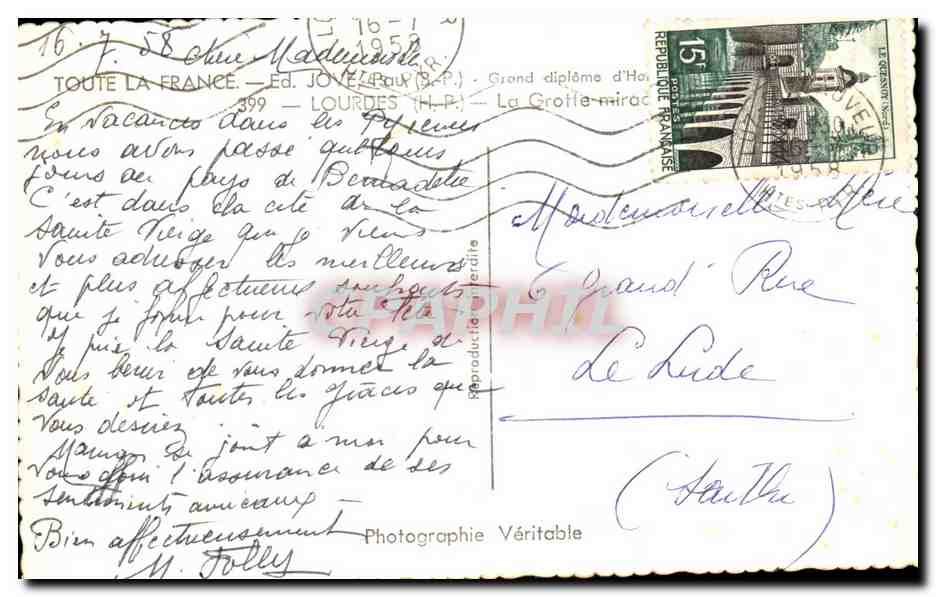 16.7.58 Chère Mademoiselle
TOUTE LA FRANCE. — Ed. JOVÉ, Pau (B.-P.) - Grand diplôme d'Ho
399 — LOURDES (H.-P.) — La Grotte mirac
En vacances dans les Pyrénées
nous avons passé quelques
jours au pays de Bernadette
C'est dans la cité de la
Sainte Vierge que je viens
vous adresser les meilleurs
et plus affectueux souhaits
que je forme pour votre fête
Je prie la Sainte Vierge de
vous bénir de vous donner la
santé et toutes les grâces que
vous désirez
Maman se joint à moi pour
vous offrir l'assurance de ses
sentiments amicaux —
Bien affectueusement
M. Folly
Reproduction interdite
Photographie Véritable
CPAPHIL
16-7
1958
15F
POSTES
REPUBLIQUE FRANÇAISE
LE QUESNOY (NORD)
1958
Mademoiselle
6 Grand' Rue
Le Lude
(Sarthe)